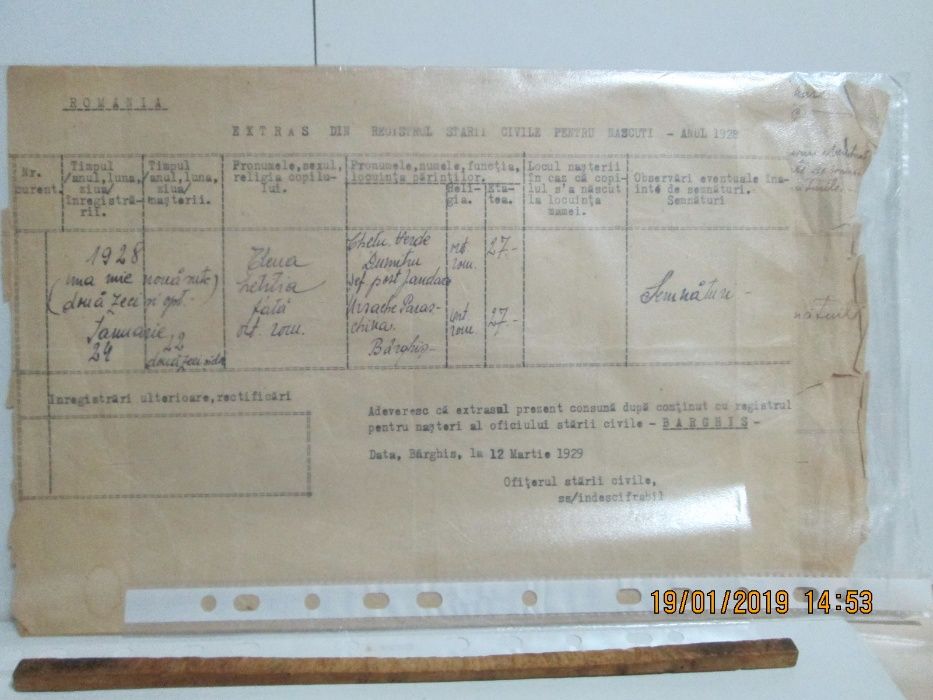 ROMANIA
EXTRAS DIN REGISTRUL STARII CIVILE PENTRU NASCUTI - ANUL 1928
Nr. curent.
Timpul /anul,luna, ziua/ înregistră- rii.
Timpul /anul,luna, ziua/ nașterii.
Pronumele,sexul, religia copilu- lui.
Pronumele,numele,funcția, locuința părinților.
Reli- gia.
Eta- tea.
Locul nașterii în caz că copi- lul s'a născut la locuința mamei.
Observări eventuale îna- inte de semnături. Semnături
1928
(una mie nouă sute)
două zeci și opt.-
Ianuarie,
24
22
două zeci și doi
Elena
Letitia
fată
ort. rom.
Verde
Dumitru
șef post jandarm
ort. rom.
27.-
Urache Paras-
chiva.
Bârghis-
ort rom.
27.-
Semnături -
Inregistrări ulterioare,rectificări
Adeveresc că extrasul prezent consună după conținut cu registrul
pentru nașteri al oficiului stării civile - BARGHIS -
Data, Bârghis, la 12 Martie 1929
Ofițerul stării civile,
ss/indescifrabil
19/01/2019 14:53